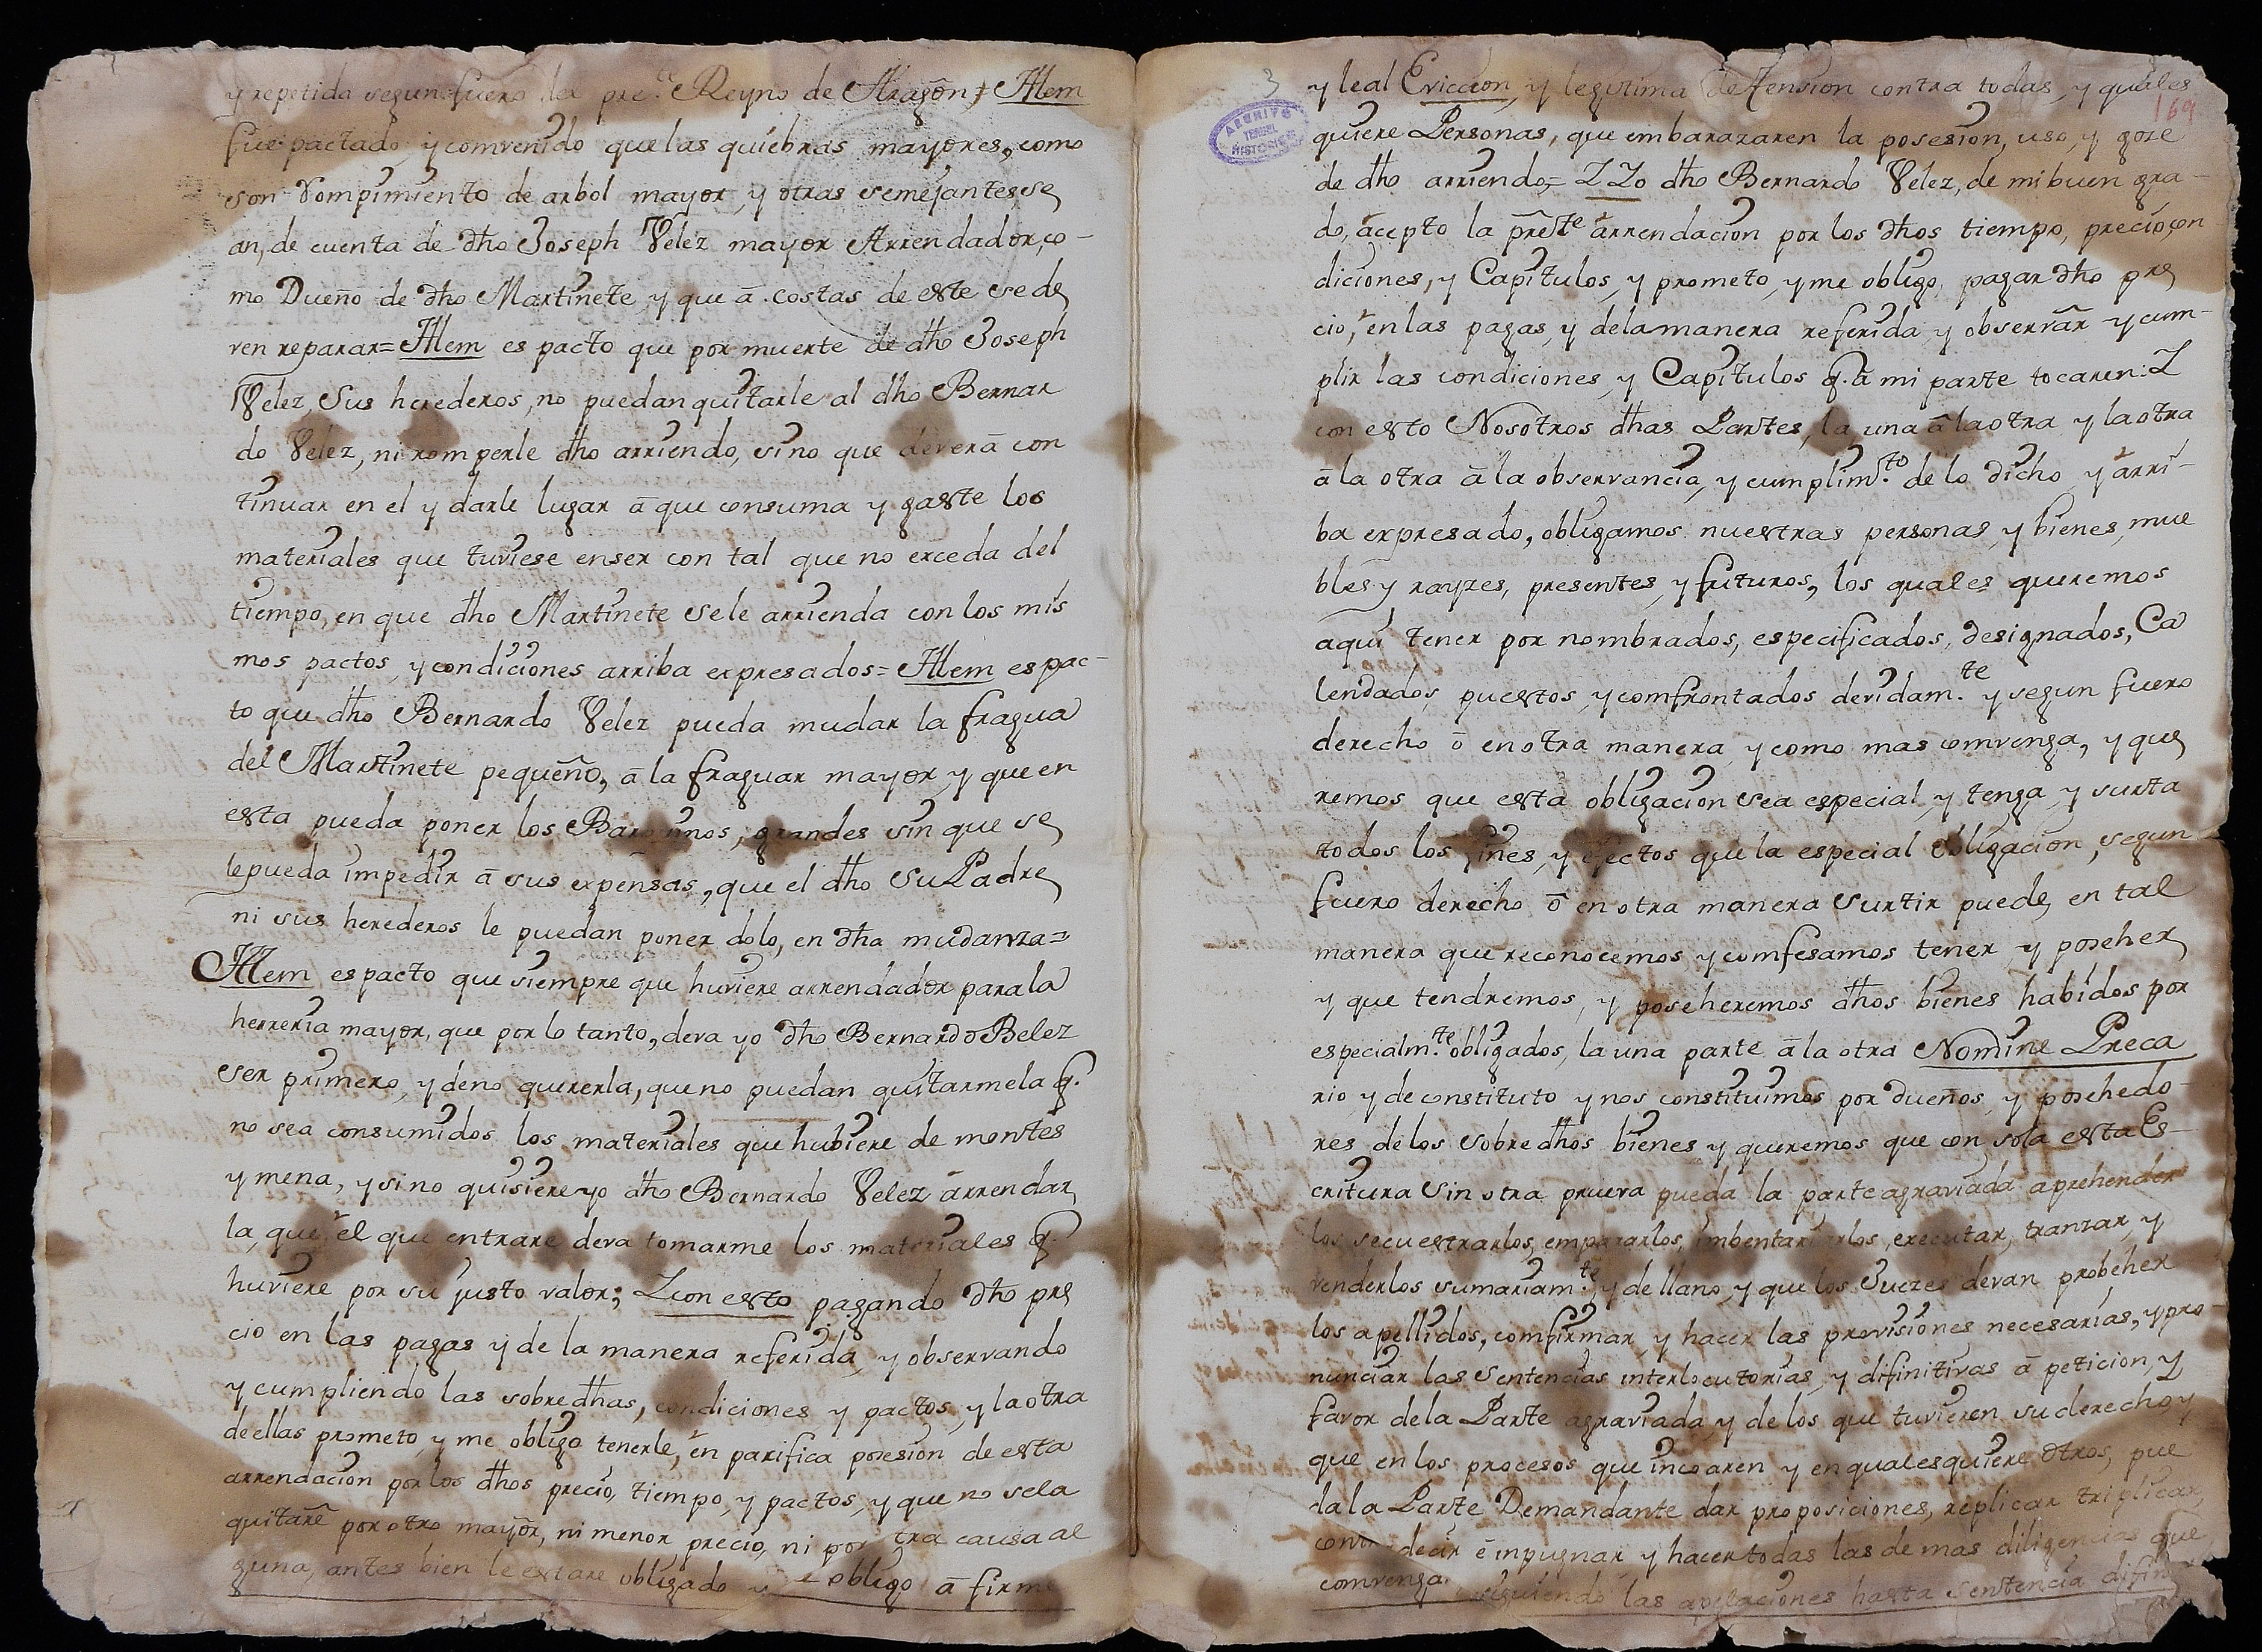 y repetida segun fuero del pre.te Reyno de Aragon, Ittem
fue pactado, y comvenido que las quiebras mayores, como
son Rompimiento de arbol mayor, y otras semejantes se
an, de cuenta de dho Joseph Velez mayor Arrendador, co-
mo Dueño de dho Martinete y que â costas de este se de
ven reparar= Ittem es pacto que por muerte de dho Joseph
Velez, Sus herederos, no puedan quitarle al dho Bernar
do Velez, ni romperle dho arriendo, sino que deverâ con
tinuar en el y darle lugar â que consuma y gaste los
materiales que tuviese enser con tal que no exceda del
tiempo, en que dho Martinete se le arrienda con los mis
mos pactos, y condiciones arriba expresados= Ittem es pac-
to que dho Bernardo Velez pueda mudar la fragua
del Martinete pequeño, â la fraguar mayor y que en
esta pueda poner los grandes sin que se
le pueda impedir â sus expensas, que el dho Su Padre
ni sus herederos le puedan poner dolo, en dha mudanza=
Ittem es pacto que siempre que huviere arrendador para la
herreria mayor, que por lo tanto, deva yo dho Bernardo Belez
ser primero, y de no quererla, que no puedan quitarmela q.
no sea consumidos los materiales que hubiere de montes
y mena, y si no quisiere yo dho Bernardo Velez arrendar
la, que el que entrare deva tomarme los materiales q.
huviere por su justo valor; Y con esto pagando dho pre
cio en las pagas y de la manera referida, y observando
y cumpliendo las sobredhas, condiciones y pactos, y la otra
de ellas prometo, y me obligo tenerle, en parifica posesion de esta
arrendacion por los dhos precio, tiempo, y pactos, y que no se la
quitarê por otro mayor, ni menor precio, ni por tra causa al
guna, antes bien le estare obligado y obligo â firme
3
y leal Eviccion, y legitima defension contra todas, y quales
169
ARCHIVO
HISTORICO
quiere Personas, que embarazaren la posesion, uso, y goze
de dho arriendo,= Y Yo dho Bernardo Velez, de mi buen gra-
do, âcepto la prêste arrendacion por los dhos tiempo, precio, con
diciones, y Capitulos, y prometo, y me obligo, pagar dho pre
cio, en las pagas, y dela manera referida y observâr y cum-
plir las condiciones, y Capitulos q. â mi parte tocaren: Y
con esto Nosotros dhas Partes, la una â la otra y la otra
â la otra â la observancia, y cumplim.to de lo dicho y arri-
ba expresado, obligamos nuestras personas, y bienes, mue
bles y rayzes, presentes, y futuros, los quales queremos
aqui tener por nombrados, especificados, designados, Ca
lendados, puestos, y comfrontados devidam.te y segun fuero
derecho ô en otra manera y como mas comvenga, y que
remos que esta obligacion sea especial, y tenga, y surta
todos los fines, y efectos que la especial obligacion, segun
fuero derecho ô en otra manera surtir puede, en tal
manera que reconocemos, y comfesamos tener, y poseher
y que tendremos, y poseheremos dhos bienes habidos por
especialm.te obligados, la una parte â la otra Nomine Preca
rio, y de constituto y nos constituimos por dueños, y posehedo-
res de los sobredhos bienes y queremos que con sola esta Es-
critura Sin otra prueva pueda la parte agraviada aprehender
los secuestrarlos, empararlos, imbentariarlos, executar, tranzar, y
venderlos sumariam.te, y de llano, y que los Juezes devan probeher
los apellidos, comfirmar, y hacer las provisiones necesarias, y pro-
nunciar las Sentencias interlocutorias, y difinitivas â peticion, y
favor dela Parte agraviada, y de los que tuvieren su derecho, y
que en los procesos que incoaren y en qualesquiere otros, pue
da la Parte Demandante dar proposiciones, replicar triplicar,
decir ê inpugnar, y hacer todas las demas diligencias que
comvenga siguiendo las apelaciones hasta sentencia